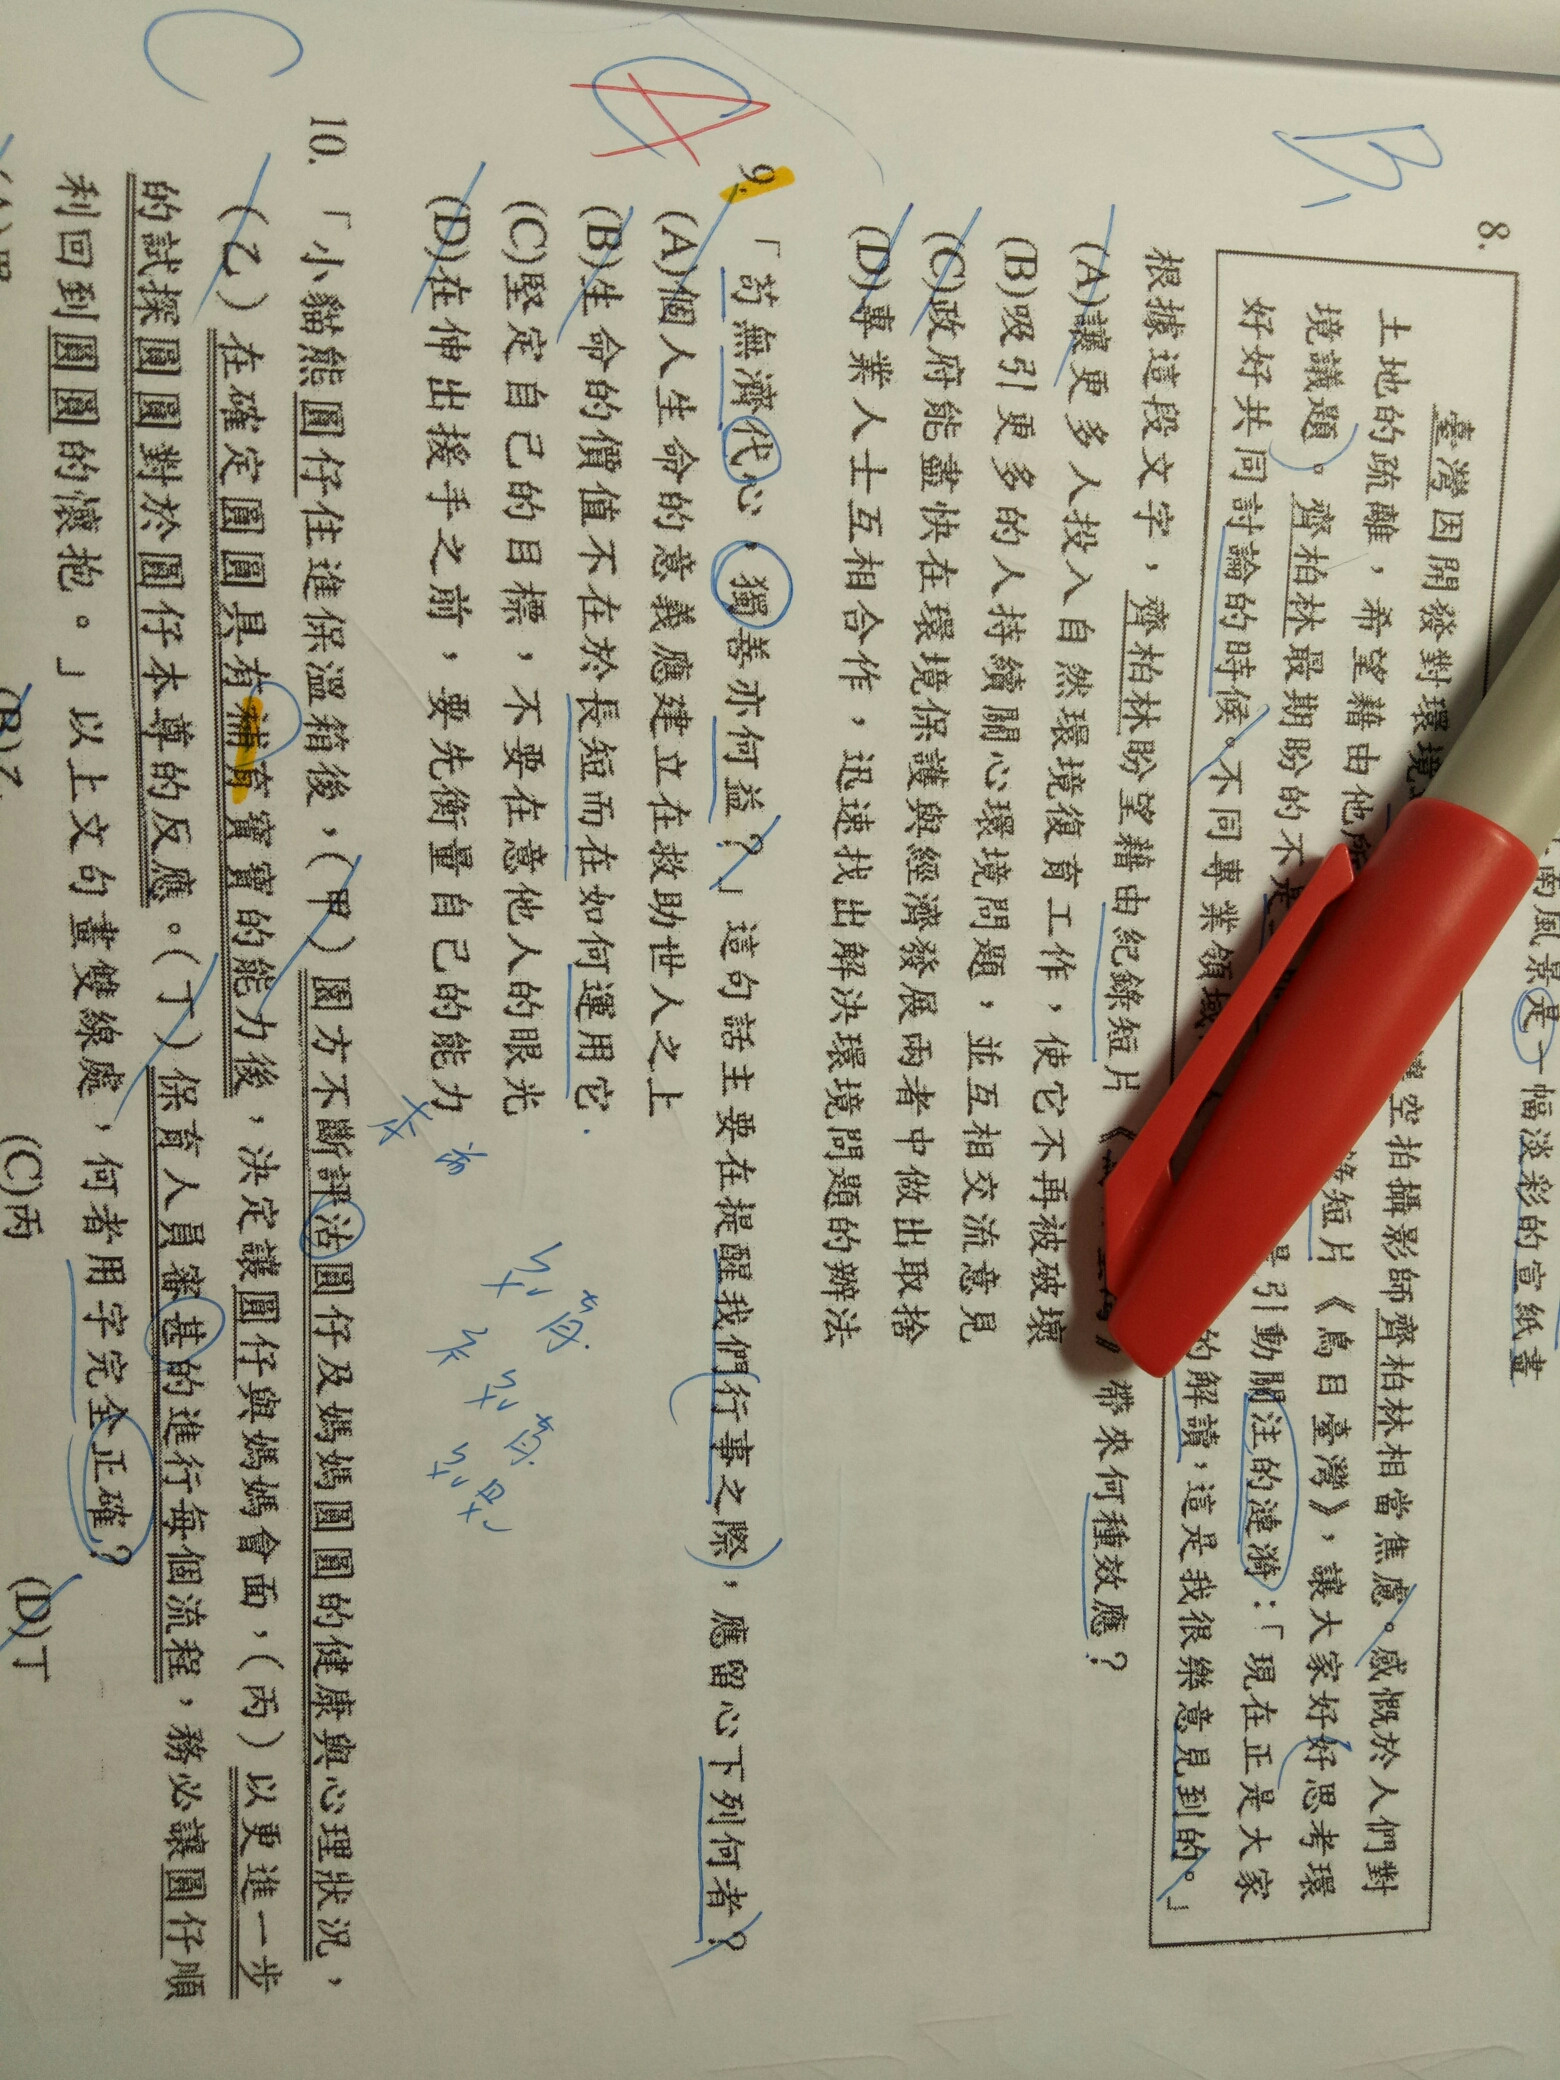 南風景是一幅淡彩的宣紙畫
B
8.
臺灣因開發對環境 空拍攝影師齊柏林相當焦慮。感慨於人們對
土地的疏離，希望藉由他所 短片《鳥目臺灣》，讓大家好好思考環
境議題。齊柏林最期盼的不是 引動關注的漣漪：「現在正是大家
好好共同討論的時候。不同專業領域 的解讀，這是我很樂意見到的。」
根據這段文字，齊柏林盼望藉由紀錄短片《 》帶來何種效應？
(A)讓更多人投入自然環境復育工作，使它不再被破壞
(B)吸引更多的人持續關心環境問題，並互相交流意見
(C)政府能盡快在環境保護與經濟發展兩者中做出取捨
(D)專業人士互相合作，迅速找出解決環境問題的辦法
A
9.「苟無濟代心，獨善亦何益？」這句話主要在提醒我們行事之際，應留心下列何者？
(A)個人生命的意義應建立在救助世人之上
(B)生命的價值不在於長短而在如何運用它
(C)堅定自己的目標，不要在意他人的眼光
(D)在伸出援手之前，要先衡量自己的能力
C
10.「小貓熊圓仔住進保溫箱後，(甲)園方不斷評沽圓仔及媽媽圓圓的健康與心理狀況，
(乙)在確定圓圓具有補育寶寶的能力後，決定讓圓仔與媽媽會面，(丙)以更進一步
的試探圓圓對於圓仔本尊的反應。(丁)保育人員審甚的進行每個流程，務必讓圓仔順
利回到圓圓的懷抱。」以上文句畫雙線處，何者用字完全正確？
(B)乙 (C)丙 (D)丁